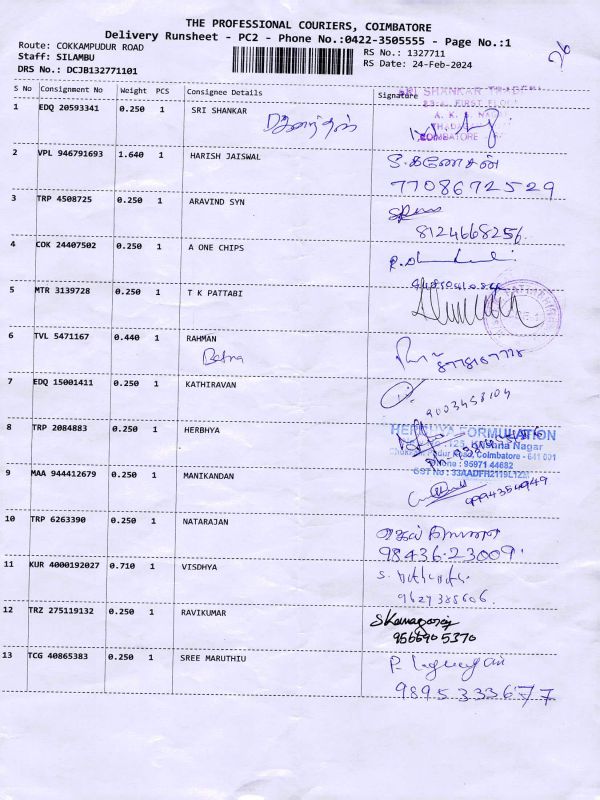 THE PROFESSIONAL COURIERS, COIMBATORE
Delivery Runsheet - PC2 - Phone No.:0422-3505555 - Page No.:1
Route: COKKAMPUDUR ROAD
RS No.: 1327711
Staff: SILAMBU
RS Date: 24-Feb-2024
DRS No.: DCJB132771101
S No Consignment No Weight PCS Consignee Details Signature
1 EDQ 20593341 0.250 1 SRI SHANKAR
COIMBATORE
2 VPL 946791693 1.640 1 HARISH JAISWAL
7708672529
3 TRP 4508725 0.250 1 ARAVIND SYN
8124668256
4 COK 24407502 0.250 1 A ONE CHIPS
5 MTR 3139728 0.250 1 T K PATTABI
6 TVL 5471167 0.440 1 RAHMAN
7 EDQ 15001411 0.250 1 KATHIRAVAN
9003458104
8 TRP 2084883 0.250 1 HERBHYA
FORMULATION
Krishna Nagar
Road, Coimbatore - 641 001
Phone : 95971 44682
GST No : 33AADFH2119L1ZM
9 MAA 944412679 0.250 1 MANIKANDAN
9994354949
10 TRP 6263390 0.250 1 NATARAJAN
98436-23009
11 KUR 4000192027 0.710 1 VISDHYA
9629385606
12 TRZ 275119132 0.250 1 RAVIKUMAR
9566905370
13 TCG 40865383 0.250 1 SREE MARUTHIU
9895333677